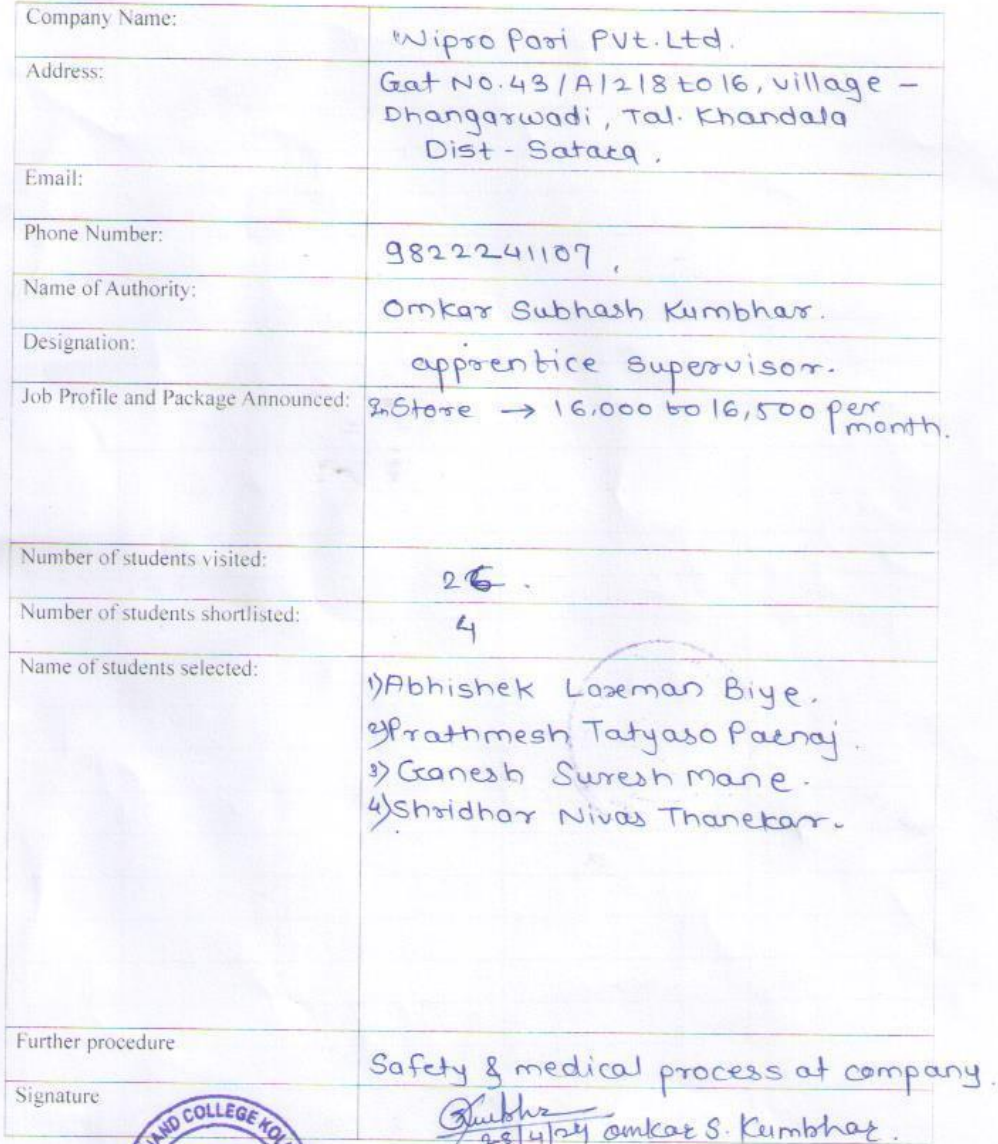 Company Name:
Wipro Pari Pvt.Ltd.
Address:
Gat No.43/A/2/8 to 16, village –
Dhangarwadi, Tal. Khandala
Dist - Satara.
Email:
Phone Number:
9822241107
Name of Authority:
Omkar Subhash Kumbhar.
Designation:
apprentice supervisor.
Job Profile and Package Announced:
In Store → 16,000 to 16,500 per
month.
Number of students visited:
26.
Number of students shortlisted:
4
Name of students selected:
1) Abhishek Laxman Biye.
2) Prathmesh Tatyaso
3) Ganesh Suresh mane.
4) Shridhar Nivas Thanekar.
Further procedure
Safety & medical process at company.
Signature
28/4/24 omkar S. Kumbhar.
AND COLLEGE KOL